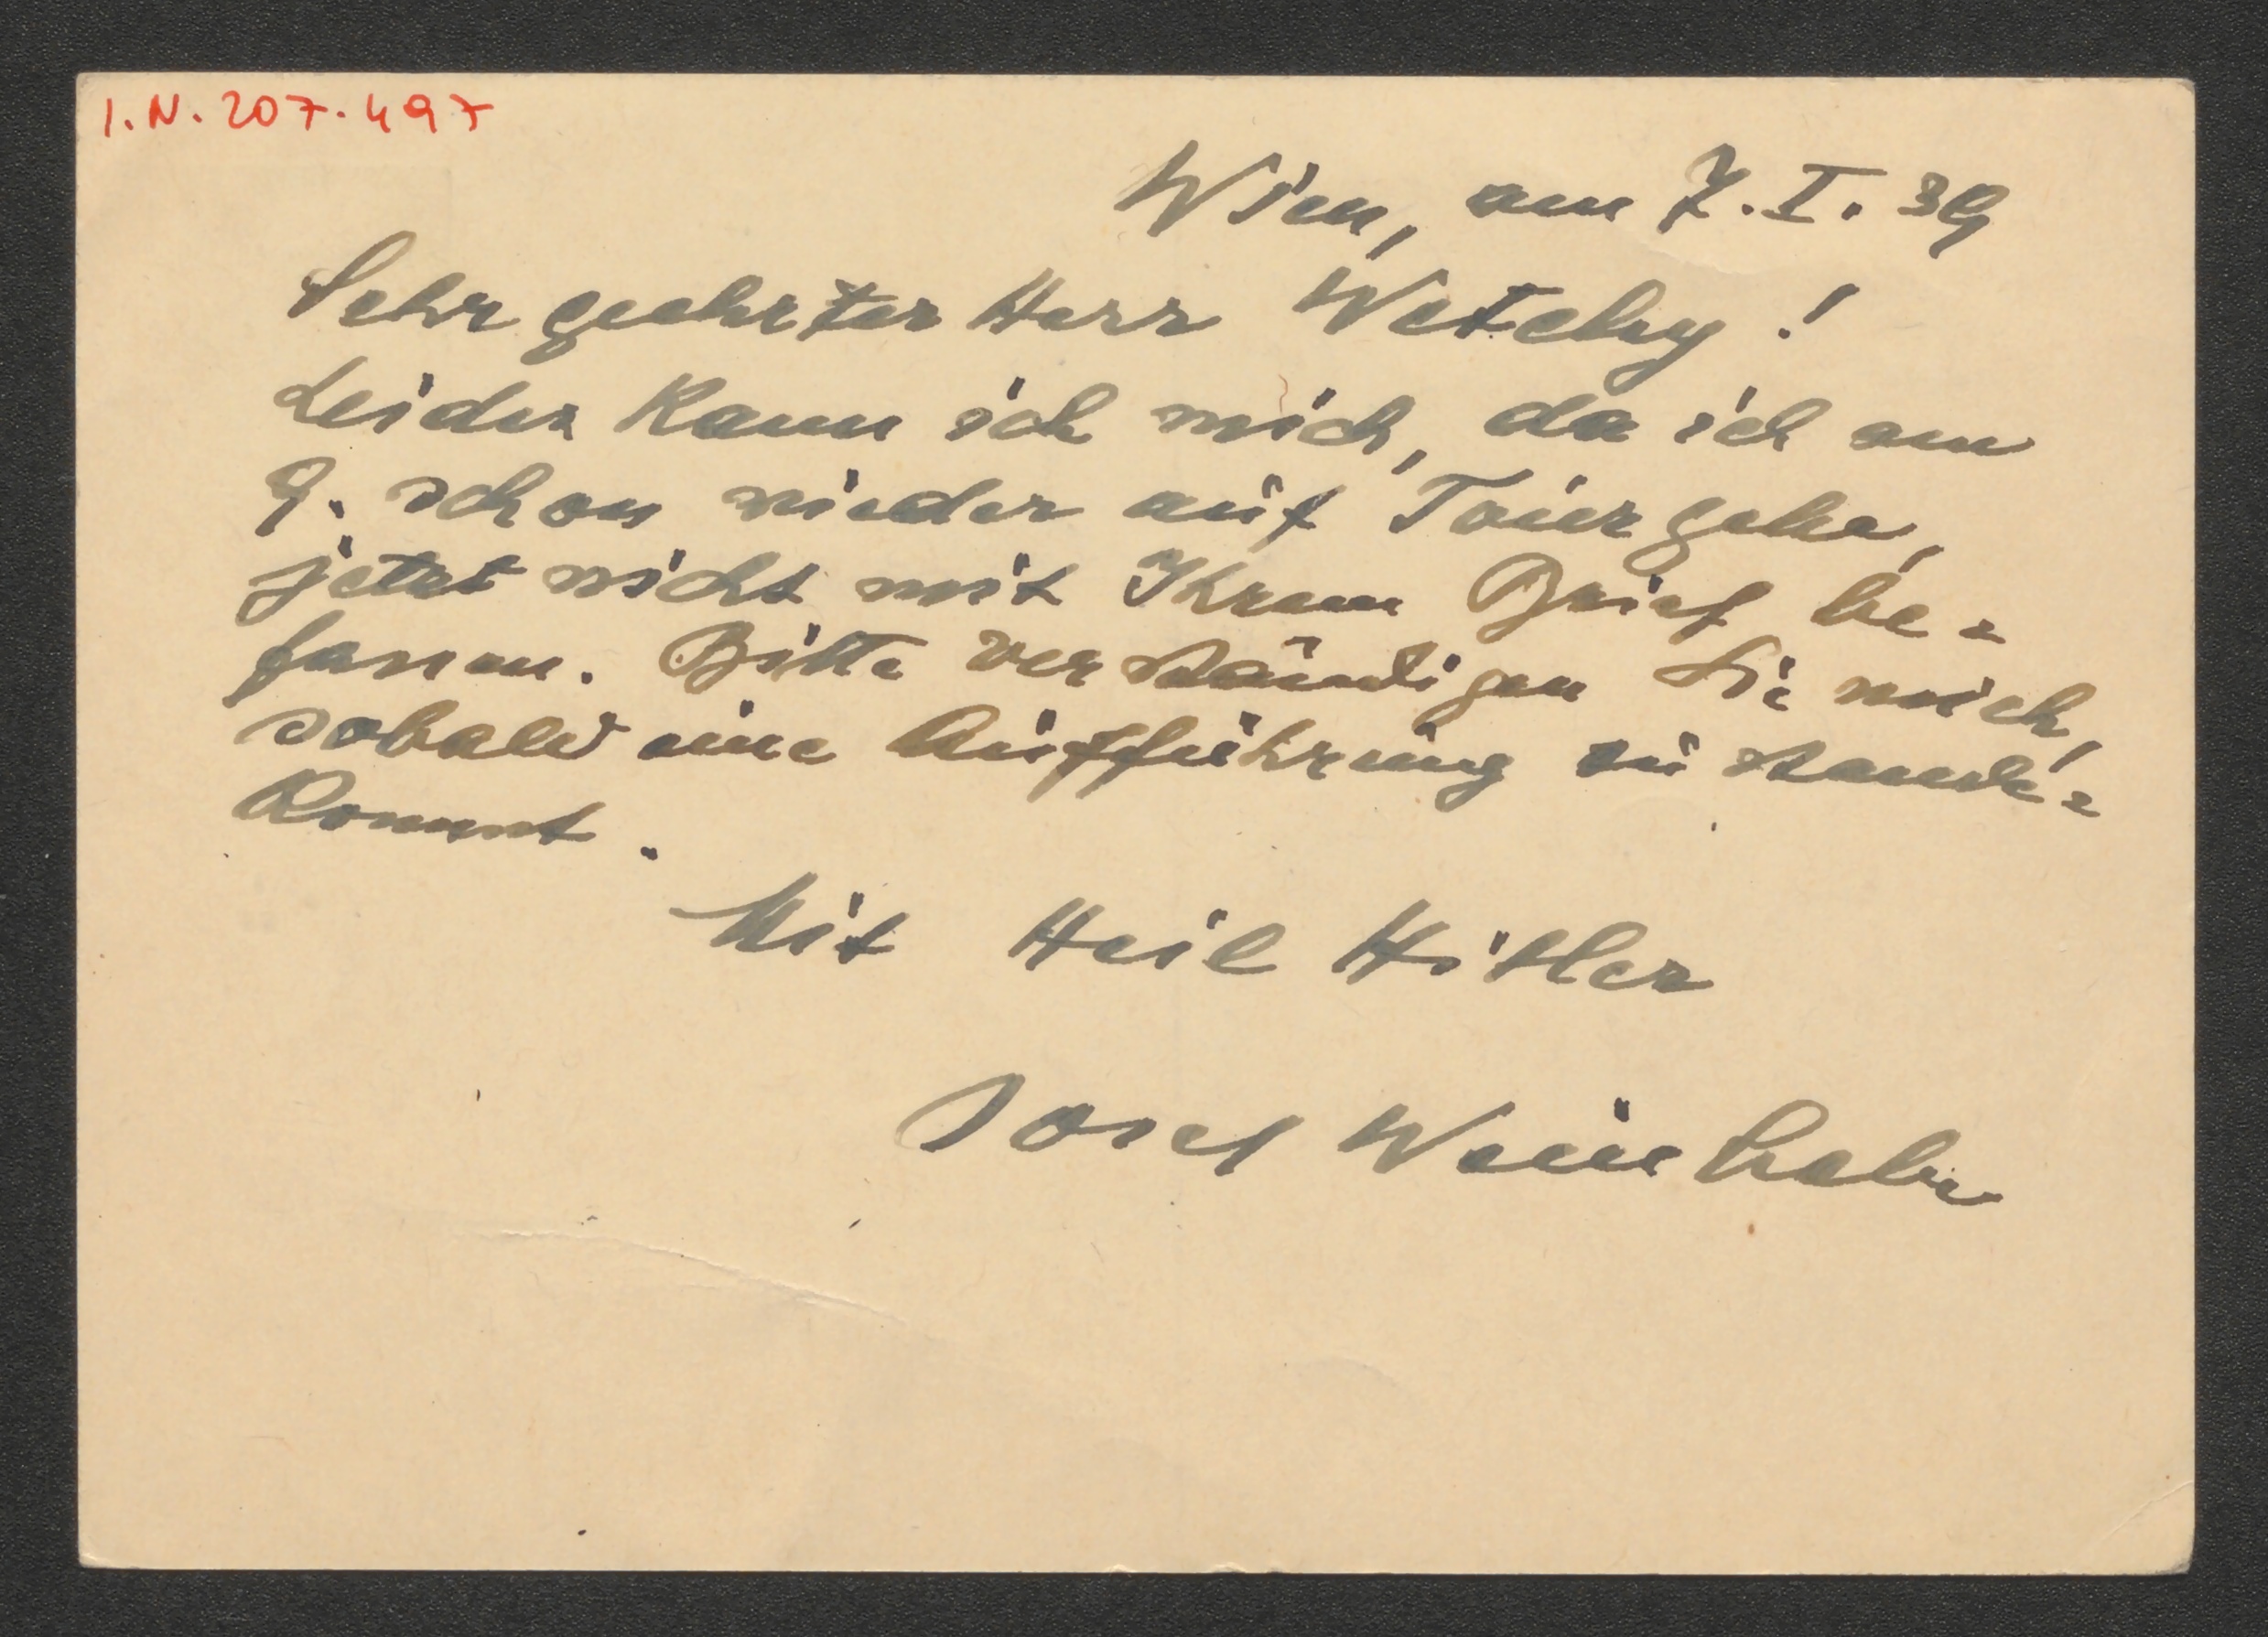 I.N. 207.497
Wien, am 7. I. 39
Sehr geehrter Herr Wetchy!
Leider kann ich mich, da ich am
9. schon wieder auf Tour gehe,
jetzt nicht mit Ihrem Brief be=
fassen. Bitte verständigen Sie mich,
sobald eine Aufführung zu stande=
kommt.
Mit Heil Hitler
Josef Weinheber